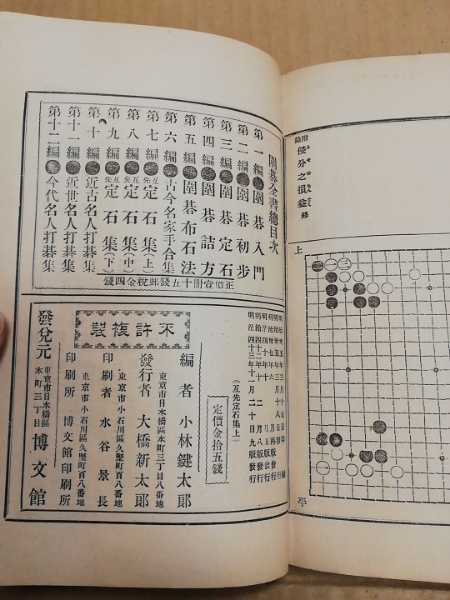 上
平
圍碁全書總目次
第一編 圍碁入門
第二編 圍碁初步
第三編 圍碁定石
第四編 圍碁詰方
第五編 圍碁布石法
第六編 古今名家手合集
第七編 互先定石集(上)
第八編 互先定石集(中)
第九編 互先定石集(下)
第十編 近古名人打碁集
第十一編 近世名人打碁集
第十二編 今代名人打碁集
正價壹冊十五錢郵稅金四錢
(互先定石集上)
定價金拾五錢
不許複製
編者 小林鍵太郎
東京市日本橋區本町三丁目八番地
發行者 大橋新太郎
東京市小石川區久堅町百八番地
印刷者 水谷景長
東京市小石川區久堅町百八番地
印刷所 博文館印刷所
發兌元 東京市日本橋區本町三丁目 博文館